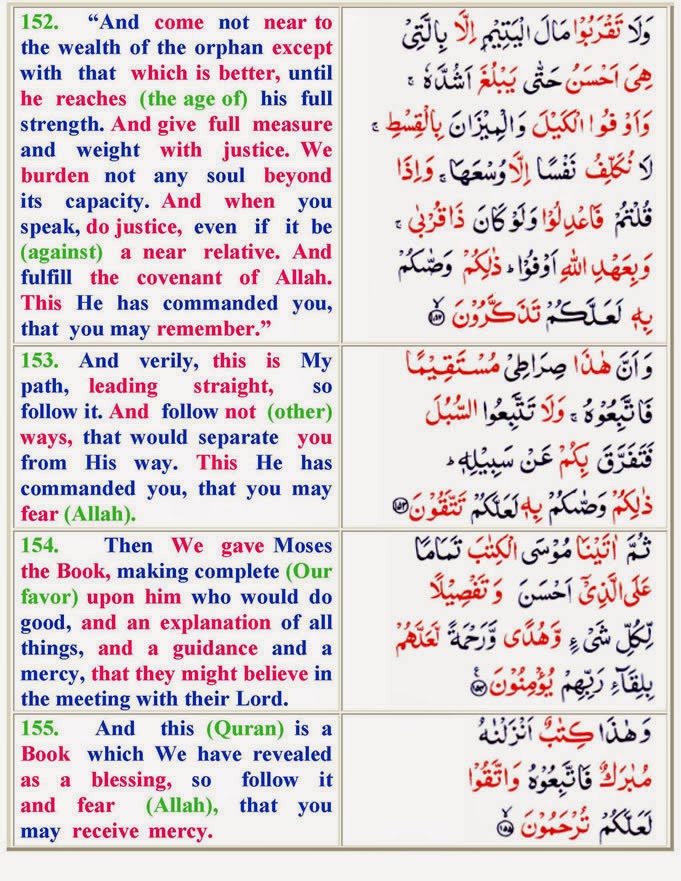 152. “And come not near to
the wealth of the orphan except
with that which is better, until
he reaches (the age of) his full
strength. And give full measure
and weight with justice. We
burden not any soul beyond
its capacity. And when you
speak, do justice, even if it be
(against) a near relative. And
fulfill the covenant of Allah.
This He has commanded you,
that you may remember.”
وَلَا تَقْرَبُوْا مَالَ الْيَتِيْمِ اِلَّا بِالَّتِىْ
هِىَ اَحْسَنُ حَتّٰى يَبْلُغَ اَشُدَّهٗ ۚ
وَاَوْفُوا الْكَيْلَ وَالْمِيْزَانَ بِالْقِسْطِ ۚ
لَا نُكَلِّفُ نَفْسًا اِلَّا وُسْعَهَا ۚ وَاِذَا
قُلْتُمْ فَاعْدِلُوْا وَلَوْ كَانَ ذَا قُرْبٰى ۚ
وَبِعَهْدِ اللّٰهِ اَوْفُوْا ؕ ذٰلِكُمْ وَصّٰٮكُمْ
بِهٖ لَعَلَّكُمْ تَذَكَّرُوْنَ ۙ‏﴿۱۵۲﴾
153. And verily, this is My
path, leading straight, so
follow it. And follow not (other)
ways, that would separate you
from His way. This He has
commanded you, that you may
fear (Allah).
وَاَنَّ هٰذَا صِرَاطِىْ مُسْتَقِيْمًا
فَاتَّبِعُوْهُ ۚ وَلَا تَتَّبِعُوا السُّبُلَ
فَتَفَرَّقَ بِكُمْ عَنْ سَبِيْلِهٖ ؕ
ذٰلِكُمْ وَصّٰٮكُمْ بِهٖ لَعَلَّكُمْ تَتَّقُوْنَ ﴿۱۵۳﴾
154. Then We gave Moses
the Book, making complete (Our
favor) upon him who would do
good, and an explanation of all
things, and a guidance and a
mercy, that they might believe in
the meeting with their Lord.
ثُمَّ اٰتَيْنَا مُوْسَى الْكِتٰبَ تَمَامًا
عَلَى الَّذِىْۤ اَحْسَنَ وَتَفْصِيْلًا
لِّكُلِّ شَىْءٍ وَّهُدًى وَّرَحْمَةً لَّعَلَّهُمْ
بِلِقَآءِ رَبِّهِمْ يُؤْمِنُوْنَ ﴿۱۵۴﴾
155. And this (Quran) is a
Book which We have revealed
as a blessing, so follow it
and fear (Allah), that you
may receive mercy.
وَهٰذَا كِتٰبٌ اَنْزَلْنٰهُ
مُبٰرَكٌ فَاتَّبِعُوْهُ وَاتَّقُوْا
لَعَلَّكُمْ تُرْحَمُوْنَ ۙ‏﴿۱۵۵﴾